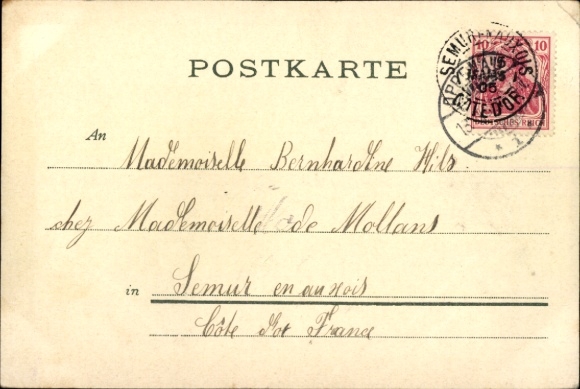 POSTKARTE
10 10
DEUTSCHES REICH
SEMUR-EN-AUXOIS
COTE D'OR
An Mademoiselle Bernhardine Hils
chez Mademoiselle de Mollans
in Semur en auxois
Côte d'or France